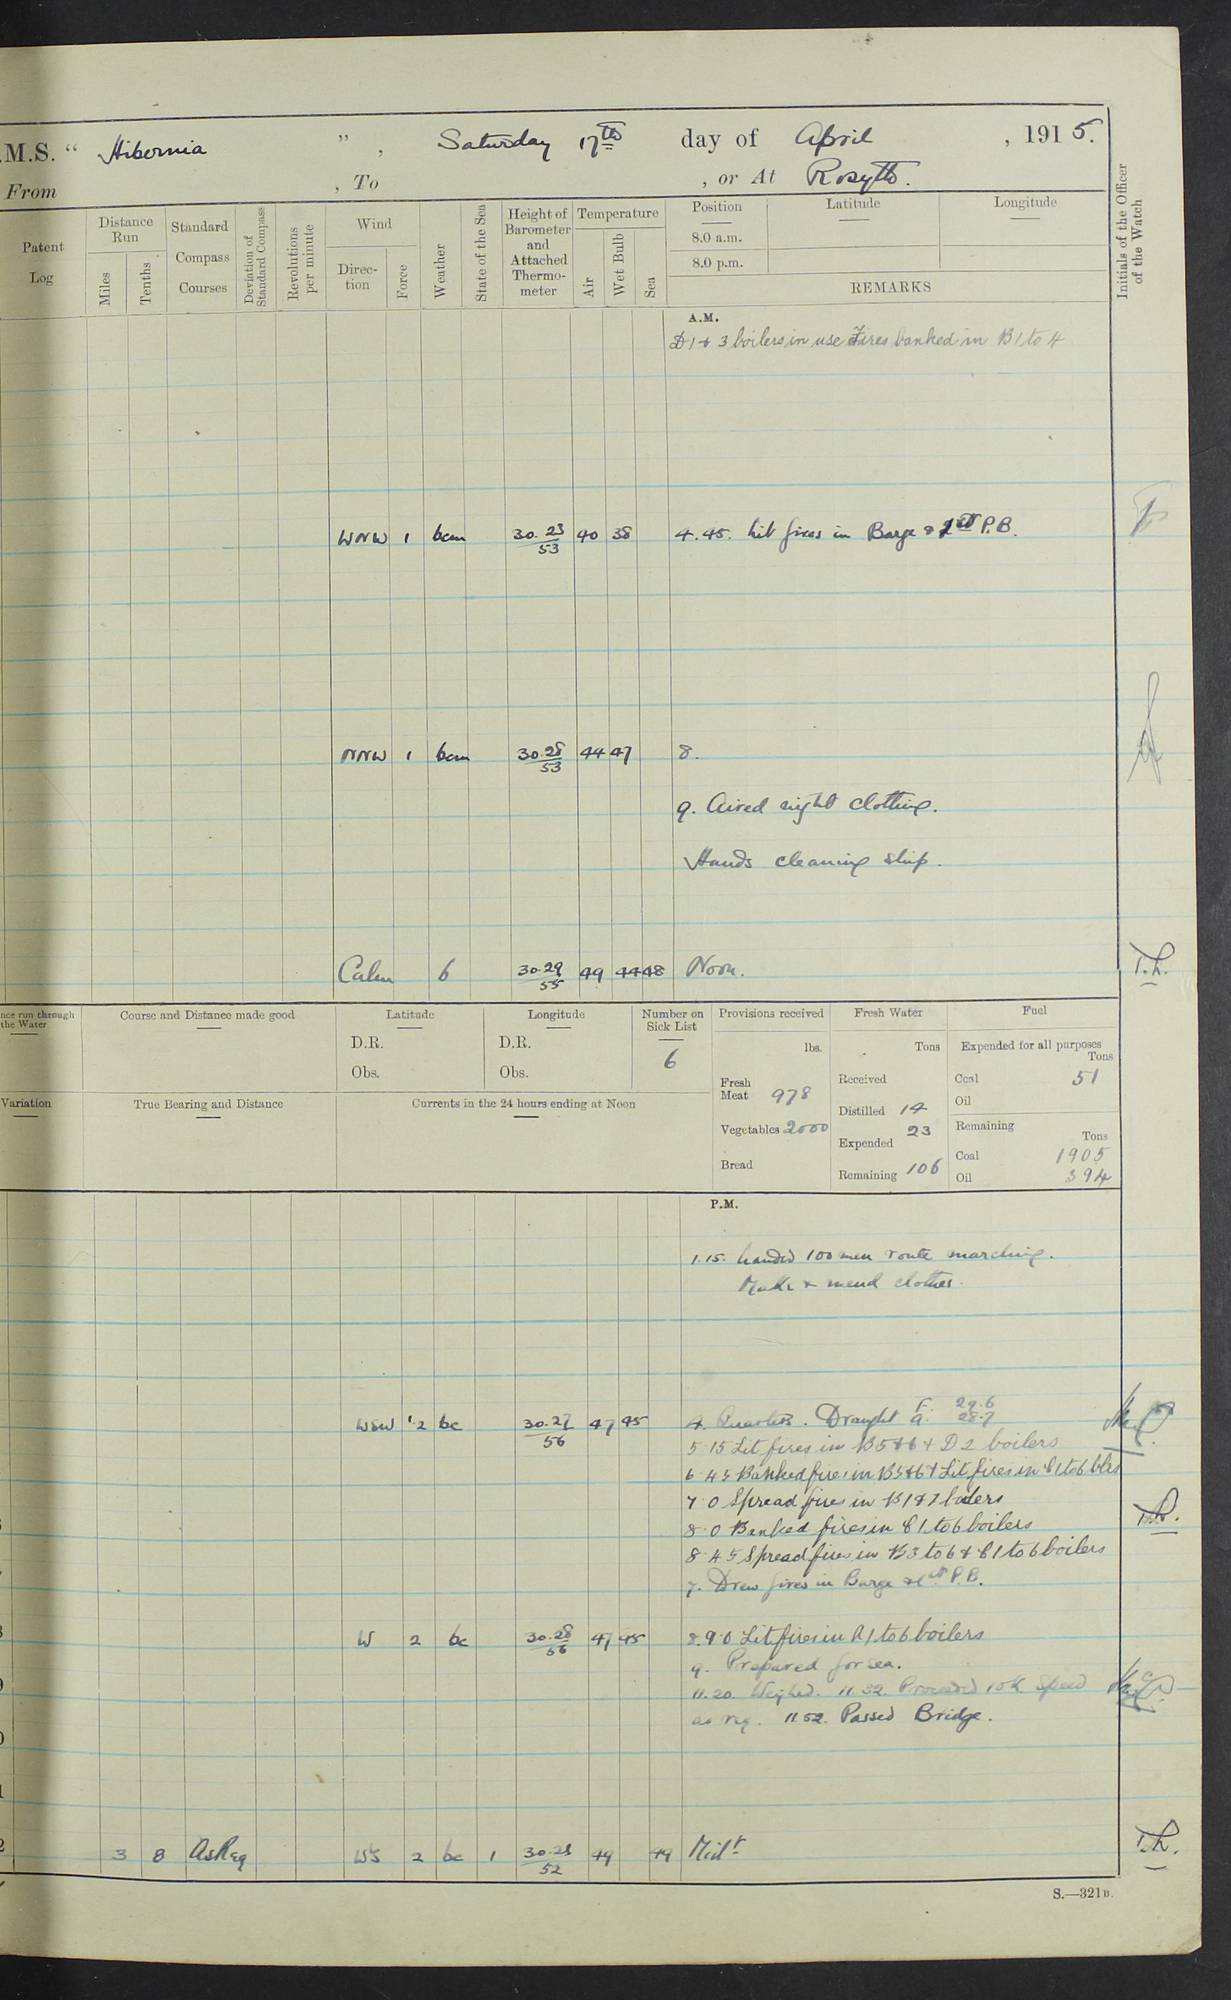 .M.S. " Hibernia " , Saturday 17th day of April , 1915.
From , To , or At Rosyth.
Patent Log
Distance Run
Miles
Tenths
Standard Compass Courses
Deviation of Standard Compass
Revolutions per minute
Wind
Direction
Force
Weather
State of the Sea
Height of Barometer and Attached Thermometer
Temperature
Air
Wet Bulb
Sea
Position
Latitude
Longitude
8.0 a.m.
8.0 p.m.
REMARKS
Initials of the Officer of the Watch
A.M.
D 1 & 3 boilers in use Fires banked in B 1 to 4
WNW 1 bcm 30.23 40 38 4.45. Lit fires in Barge & 1st P.B.
53
NNW 1 bcm 30.28 44 47 8.
53
9. Aired night clothing.
Hands cleaning ship.
Calm b 30.29 49 44 48 Noon. T.L.
55
nce run through the Water
Course and Distance made good
Latitude
D.R.
Obs.
Longitude
D.R.
Obs.
Number on Sick List
6
Variation
True Bearing and Distance
Currents in the 24 hours ending at Noon
Provisions received
lbs.
Fresh Meat 978
Vegetables 2000
Bread
Fresh Water
Tons
Received
Distilled 14
Expended 23
Remaining 106
Fuel
Expended for all purposes
Tons
Coal 51
Oil
Remaining
Tons
Coal 1905
Oil 394
P.M.
1.15. Landed 100 men route marching.
Make & mend clothes.
WSW 1.2 bc 30.27 47 45 4. Quarters. Draught F. 29.6
56 A. 28.7
5 15 Lit fires in B5&6 & D 2 boilers
6 45 Banked fires in B5&6 & Lit fires in C 1 to 6 blrs
7 0 Spread fires in B 1 & 2 boilers
8 0 Banked fires in C 1 to 6 boilers
8 45 Spread fires in B3 to 6 & C 1 to 6 boilers
7. Drew fires in Barge & 1st P.B.
W 2 bc 30.28 47 45 8. 9 0 Lit fires in A 1 to 6 boilers
56
9. Prepared for sea.
11.20. Weighed. 11.32. Proceeded 10 K Speed
as req. 11 52. Passed Bridge.
3 8 As Req 2 bc 1 30.28 49 49 Midt T.L.
52
S.—321B.